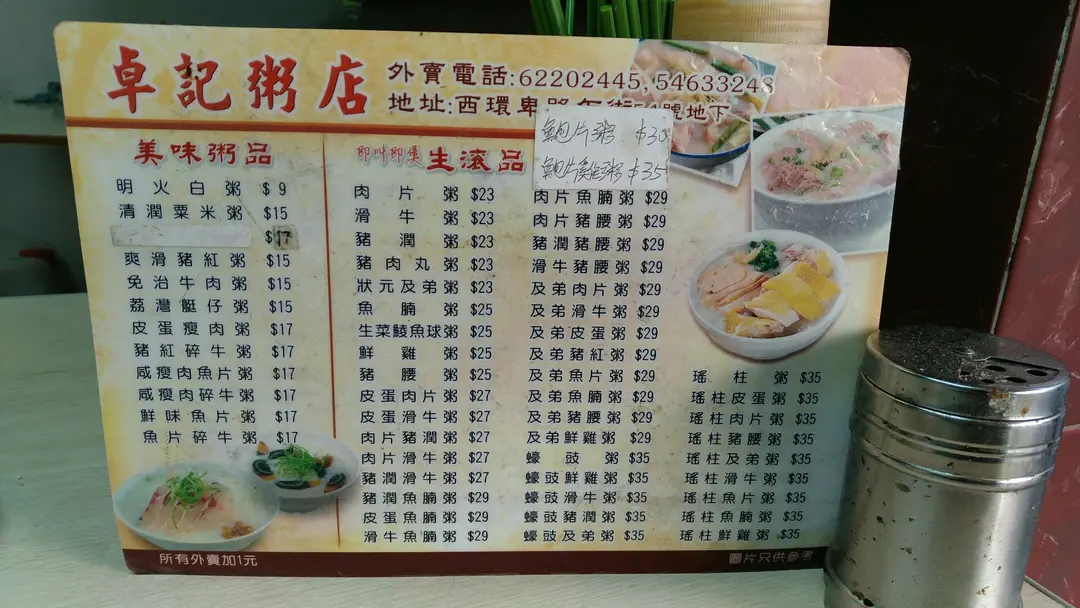 卓記粥店
外賣電話:62202445, 54633248
地址:西環卑路 號地下
鮑片粥 $30
鮑片雞粥 $35
美味粥品
明火白粥 $9
清潤粟米粥 $15
$17
爽滑豬紅粥 $15
免治牛肉粥 $15
荔灣艇仔粥 $15
皮蛋瘦肉粥 $17
豬紅碎牛粥 $17
咸瘦肉魚片粥 $17
咸瘦肉碎牛粥 $17
鮮味魚片粥 $17
魚片碎牛粥 $17
即叫即煲 生滾品
肉片粥 $23
滑牛粥 $23
豬潤粥 $23
豬肉丸粥 $23
狀元及弟粥 $23
魚腩粥 $25
生菜鯪魚球粥 $25
鮮雞粥 $25
豬腰粥 $25
皮蛋肉片粥 $27
皮蛋滑牛粥 $27
肉片豬潤粥 $27
肉片滑牛粥 $27
豬潤滑牛粥 $27
豬潤魚腩粥 $29
皮蛋魚腩粥 $29
滑牛魚腩粥 $29
肉片魚腩粥 $29
肉片豬腰粥 $29
豬潤豬腰粥 $29
滑牛豬腰粥 $29
及弟肉片粥 $29
及弟滑牛粥 $29
及弟皮蛋粥 $29
及弟豬紅粥 $29
及弟魚片粥 $29
及弟魚腩粥 $29
及弟豬腰粥 $29
及弟鮮雞粥 $29
蠔豉粥 $35
蠔豉鮮雞粥 $35
蠔豉滑牛粥 $35
蠔豉豬潤粥 $35
蠔豉及弟粥 $35
瑤柱粥 $35
瑤柱皮蛋粥 $35
瑤柱肉片粥 $35
瑤柱豬腰粥 $35
瑤柱及弟粥 $35
瑤柱滑牛粥 $35
瑤柱魚片粥 $35
瑤柱魚腩粥 $35
瑤柱鮮雞粥 $35
所有外賣加1元
圖片只供參考